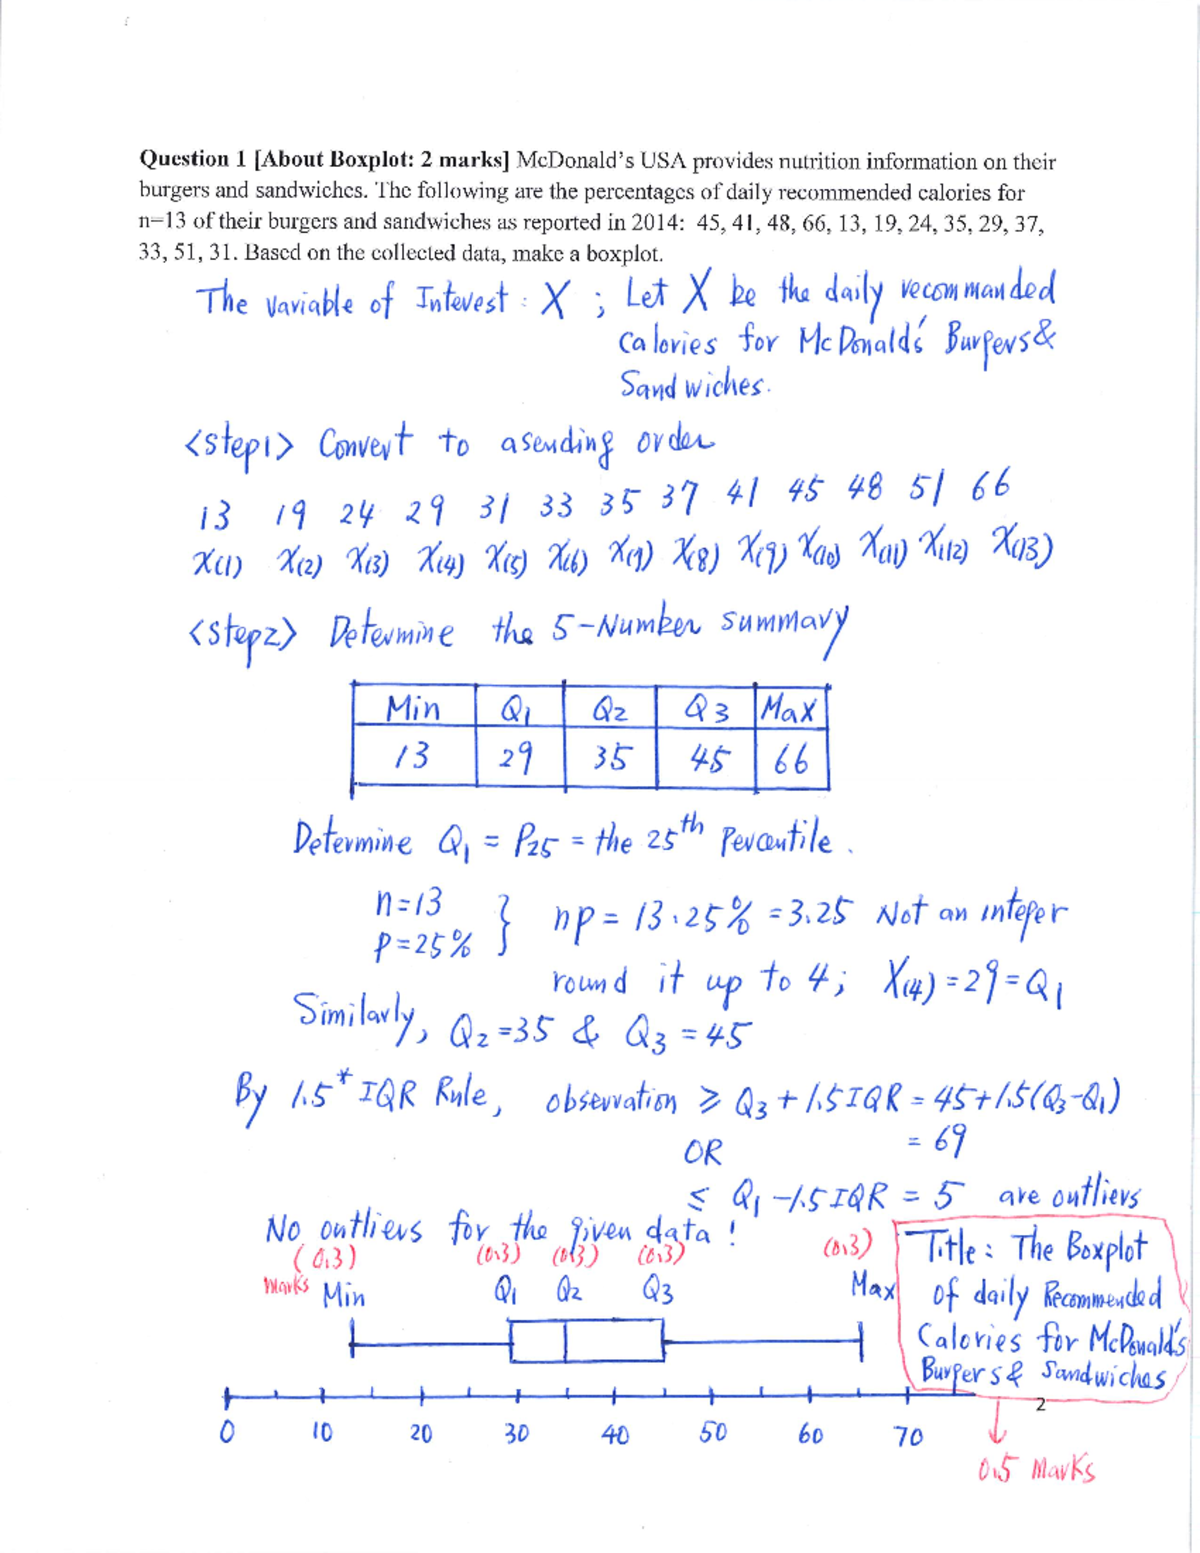 Question 1 [About Boxplot: 2 marks] McDonald's USA provides nutrition information on their
burgers and sandwiches. The following are the percentages of daily recommended calories for
n=13 of their burgers and sandwiches as reported in 2014: 45, 41, 48, 66, 13, 19, 24, 35, 29, 37,
33, 51, 31. Based on the collected data, make a boxplot.
The Variable of Interest : X ; Let X be the daily recommanded
Calories for McDonald's Burgers &
Sandwiches.
<step1> Convert to asending order
13 19 24 29 31 33 35 37 41 45 48 51 66
X(1) X(2) X(3) X(4) X(5) X(6) X(7) X(8) X(9) X(10) X(11) X(12) X(13)
<step2> Determine the 5-Number summary
Min Q1 Q2 Q3 Max
13 29 35 45 66
Determine Q1 = P25 = the 25th Percentile.
n=13
p=25% } np = 13·25% = 3.25 Not an integer
round it up to 4; X(4) = 29 = Q1
Similarly, Q2 = 35 & Q3 = 45
By 1.5* IQR Rule, observation ≥ Q3 + 1.5IQR = 45+1.5(Q3-Q1)
OR = 69
≤ Q1 - 1.5IQR = 5 are outliers
No outliers for the given data !
(0.3) (0.3) (0.3) (0.3) (0.3)
Marks Min Q1 Q2 Q3 Max
Title: The Boxplot
of daily Recommended
Calories for McDonald's
Burgers & Sandwiches
2
0 10 20 30 40 50 60 70
0.5 Marks